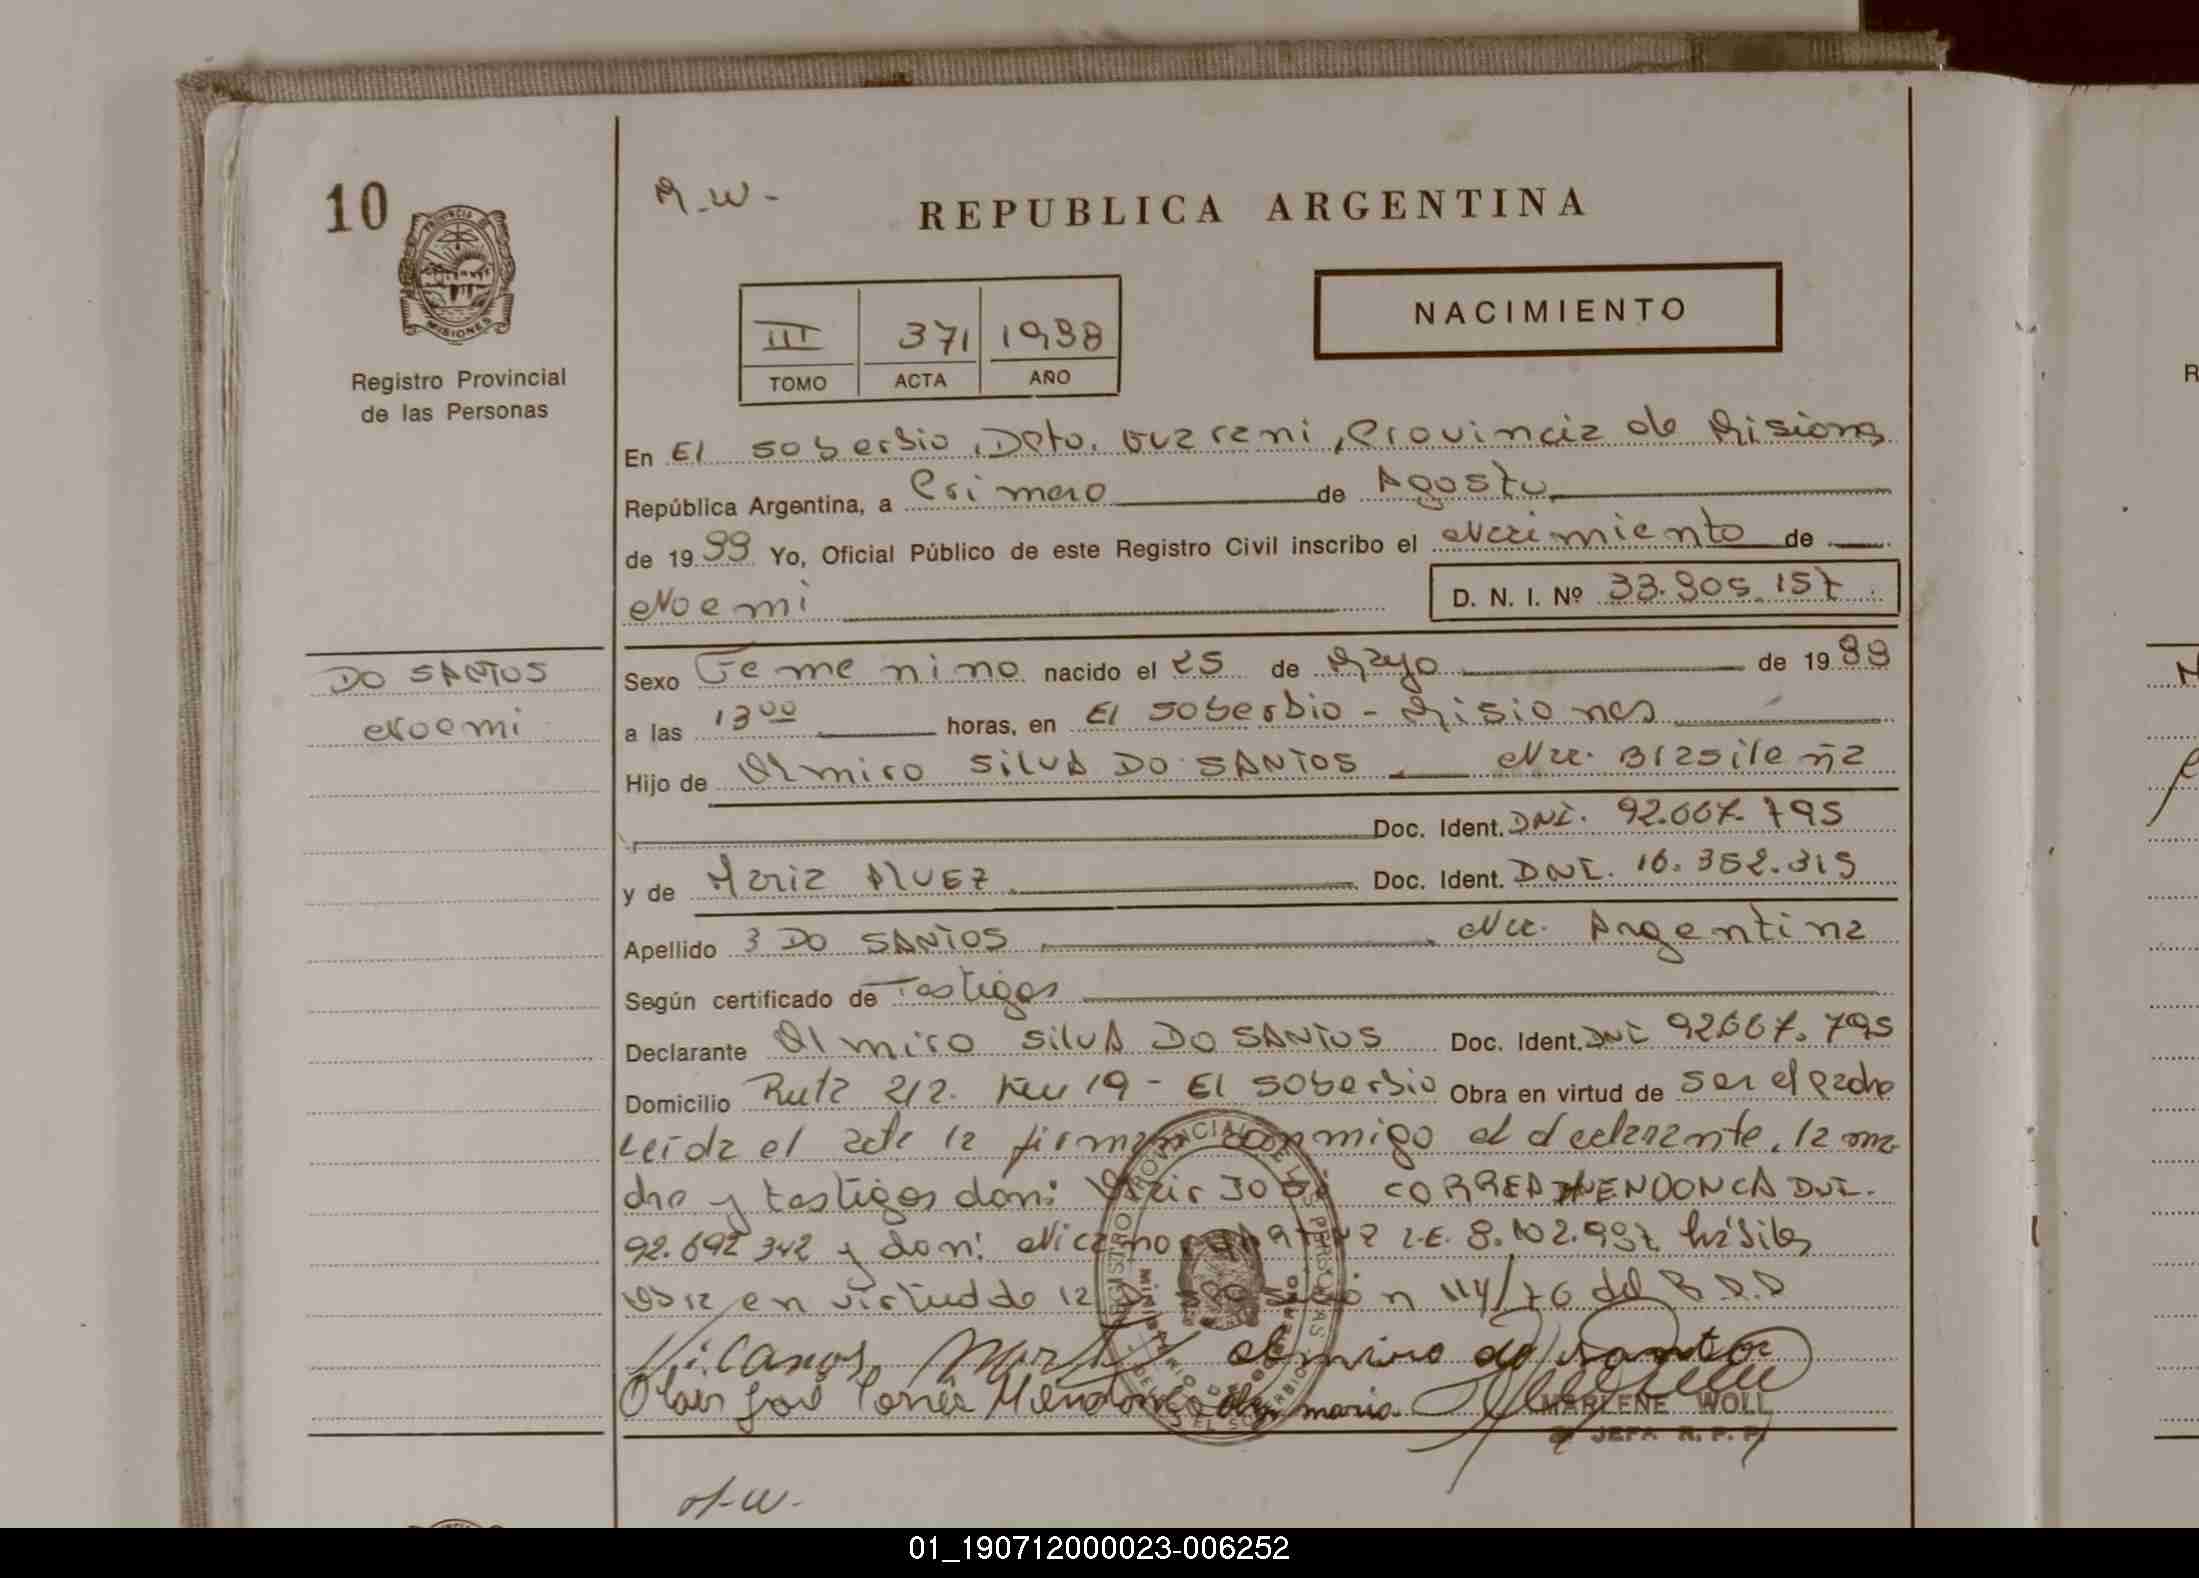 10
M.W-
REPUBLICA ARGENTINA
PROVINCIA DE
MISIONES
Registro Provincial
de las Personas
III 371 1988
TOMO ACTA AÑO
NACIMIENTO
En El Soberbio, Dpto. Guarani, Provincia de Misiones
República Argentina, a Primero de Agosto
de 1988 Yo, Oficial Público de este Registro Civil inscribo el Nacimiento de
Noemi D. N. I. Nº 33.905.157
DO SANTOS
Noemi
Sexo Femenino nacido el 25 de Mayo de 1988
a las 13 00 horas, en El Soberbio - Misiones
Hijo de Olmiro SILVA DO SANTOS Nac. Brasileña
Doc. Ident. DNI. 92.667.795
y de Maria ALVEZ Doc. Ident. DNI. 16.352.315
Apellido 3 DO SANTOS Nac. Argentina
Según certificado de Testigos
Declarante Olmiro SILVA DO SANTOS Doc. Ident. DNI 92667.795
Domicilio Ruta 212. Km 19 - El Soberbio Obra en virtud de ser el padre
Leída el acta la firman conmigo el declarante, la ma
dre y testigos don: José CORREA MENDONCA DNI.
92.692 342 y don: L.E. 8.102.997 hábiles
en virtud de la Disposición 114/76 del R.D.D
Olmiro do Santos
José Correa Mendonca maria
MARLENE WOLL
JEFA R. P. P.
REGISTRO PROVINCIAL DE LAS PERSONAS
MINISTERIO DE GOBIERNO
-W-
01_190712000023-006252